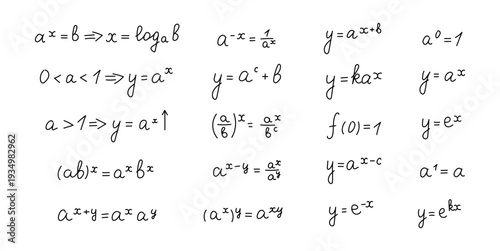 aˣ = b ⇒ x = logₐb
a⁻ˣ = 1/aˣ
y = aˣ⁺ᵇ
a⁰ = 1
0 < a < 1 ⇒ y = aˣ
y = aᶜ + b
y = kaˣ
y = aˣ
a > 1 ⇒ y = aˣ↑
(a/b)ˣ = aˣ/bᶜ
f(0) = 1
y = eˣ
(ab)ˣ = aˣbˣ
aˣ⁻ʸ = aˣ/aʸ
y = aˣ⁻ᶜ
a¹ = a
aˣ⁺ʸ = aˣaʸ
(aˣ)ʸ = aˣʸ
y = e⁻ˣ
y = eᵏˣ
Adobe Stock | #1934982962